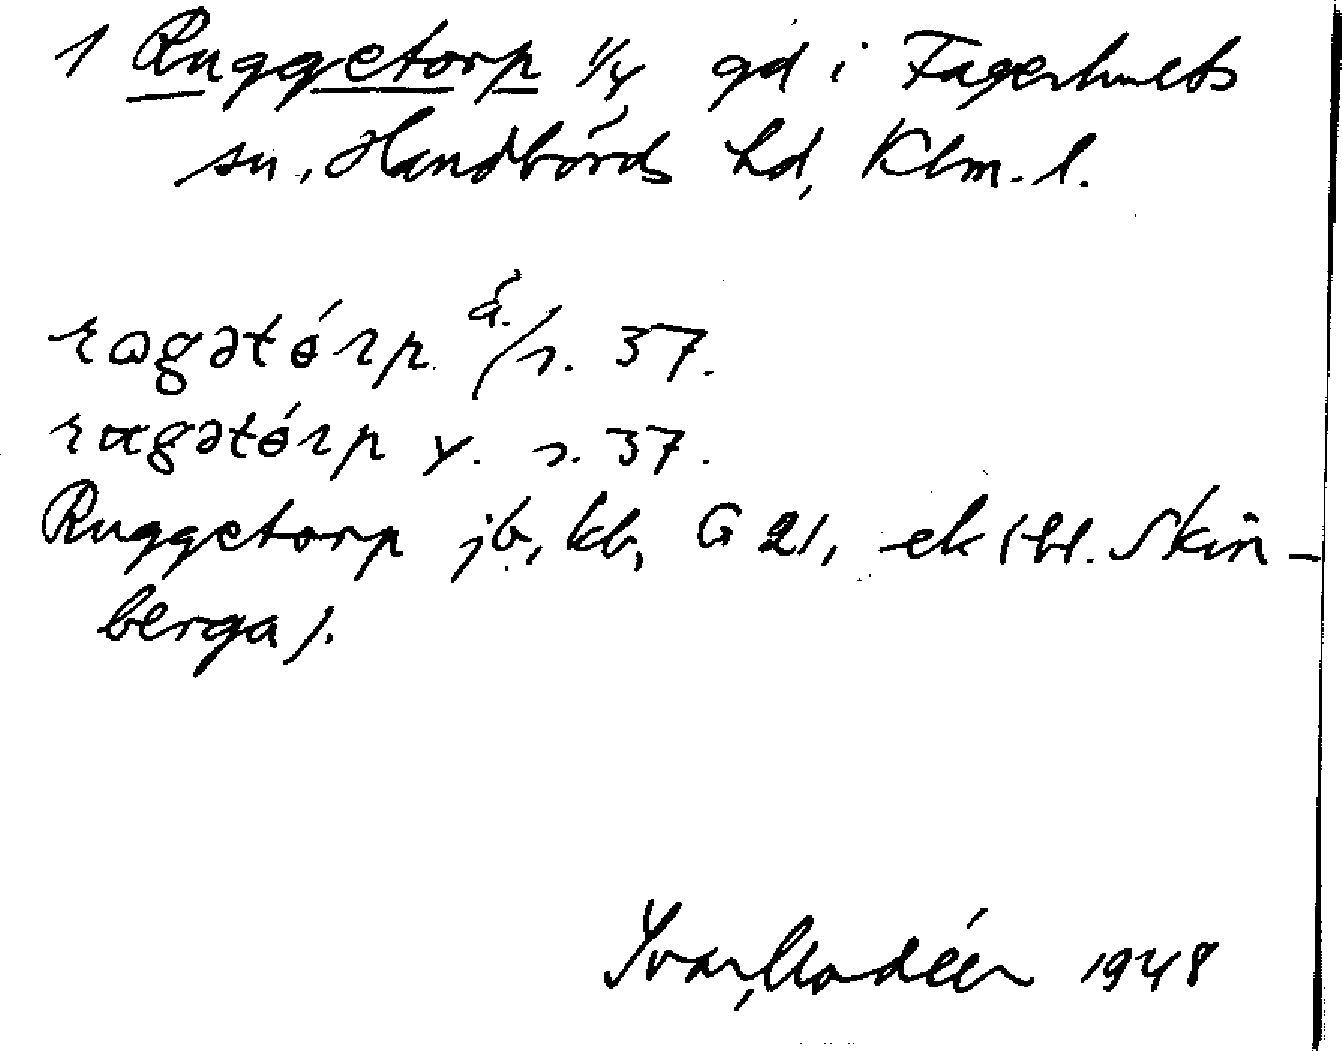 1 Ruggetorp 1/4 gd i Fagerhults
sn, Handbörds hd, Klm. l.
rɷgətórp ä. r. 37.
rugətórp y. r. 37.
Ruggetorp jb, kb, G 21, ek (bl. Skin-
berga).
Ivar Modéer 1948